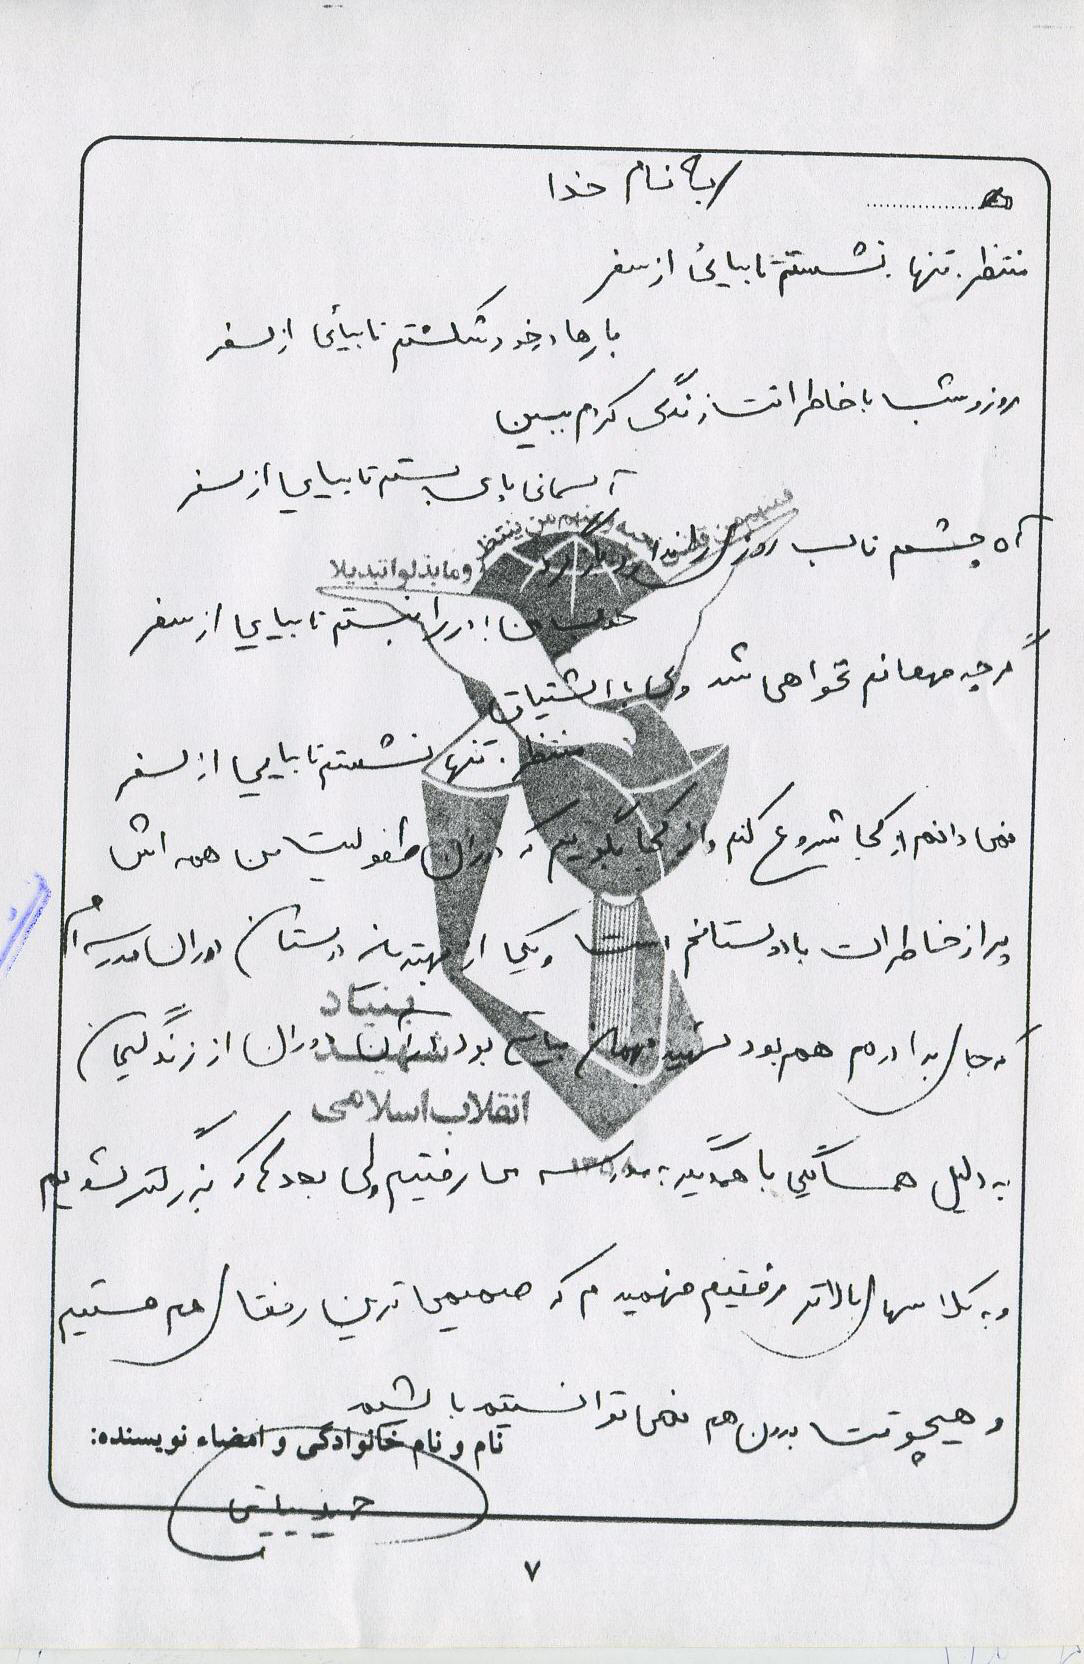 به نام خدا
منتظر، تنها نشستم تا بیائی از سفر
بارها در خود شکستم تا بیائی از سفر
روز و شب با خاطراتت زندگی کردم ببین
آسمانی یاس بستم تا بیایی از سفر
آه چشمم تا سب روزی
را نبستم تا بیایی از سفر
گرچه مهمانم نخواهی شد ولی با اشتیاق
منتظر، تنها نشستم تا بیایی از سفر
نمی دانم از کجا شروع کنم و از کجا بگویم که دوران طفولیت من همه اش
پر از خاطرات با دوستانم است و یکی از بهترین دوستان دوران مدرسه ام
که جای برادرم هم بود شهید بهمان بیاتی بود در آن دوران از زندگیمان
به دلیل همسایگی با همدیگر به مدرسه می رفتیم ولی بعدها که بزرگتر شدیم
و به کلاسهای بالاتر رفتیم فهمیدم که صمیمی ترین رفقای هم هستیم
و هیچوقت بدون هم نمی توانستیم باشیم
نام و نام خانوادگی و امضاء نویسنده:
حمید بیاتی
وما بدلوا تبدیلا
بنیاد
شهید
انقلاب اسلامی
۷